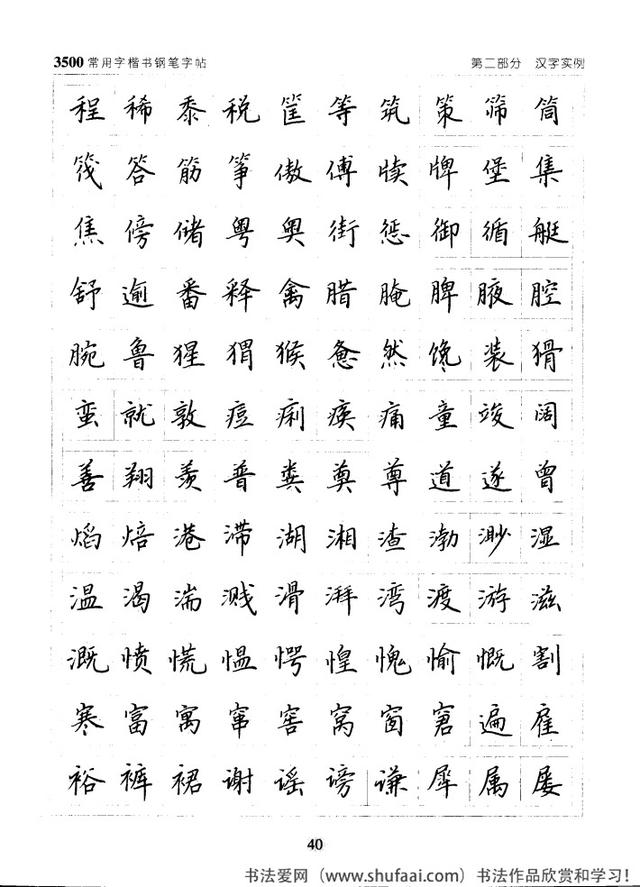 3500常用字楷书钢笔字帖 第二部分 汉字实例
程稀黍税筐等筑策筛筒
筏答筋筝傲傅牍牌堡集
焦傍储粤奥街惩御循艇
舒逾番释禽腊腌脾腋腔
腕鲁猩猬猴惫然馋装猾
蛮就敦痘痢痪痛童竣阔
善翔羡普粪奠尊道遂曾
焰焙港滞湖湘渣渤渺湿
温渴湍溅滑湃湾渡游滋
溉愤慌愠愕惶愧愉慨割
寒富寓窜窖窝窗窘遍雇
裕裤裙谢谣谤谦犀属屡
40
书法爱网（www.shufaai.com）书法作品欣赏和学习!